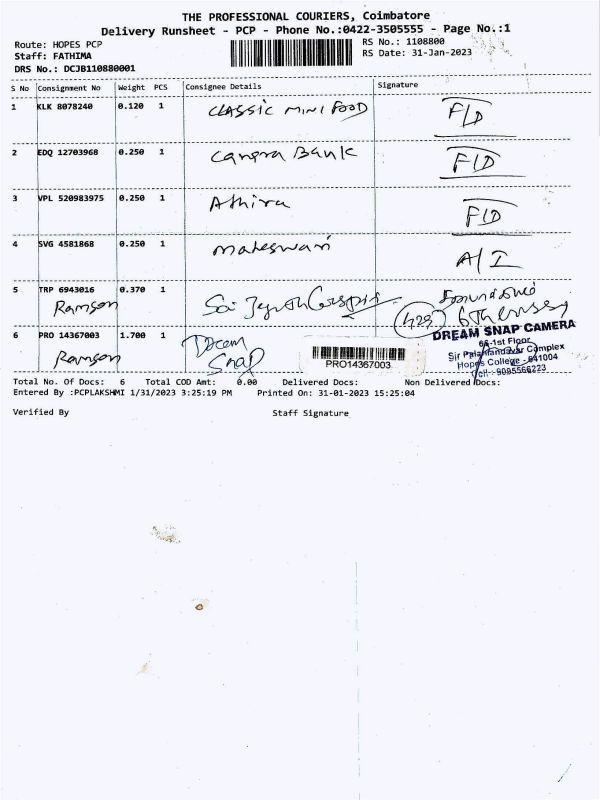 THE PROFESSIONAL COURIERS, Coimbatore
Delivery Runsheet - PCP - Phone No.:0422-3505555 - Page No.:1
Route: HOPES PCP
Staff: FATHIMA
DRS No.: DCJB110880001
RS No.: 1108800
RS Date: 31-Jan-2023
S No Consignment No Weight PCS Consignee Details Signature
1 KLK 8078240 0.120 1 CLASSIC MINI FOOD F/D
2 EDQ 12703968 0.250 1 Canara Bank F/D
3 VPL 520983975 0.250 1 Athira F/D
4 SVG 4581868 0.250 1 Maheswari A/I
5 TRP 6943016 0.370 1 Sai
Ramson
429
6 PRO 14367003 1.700 1 Dream
Snap
Ramson
PRO14367003
DREAM SNAP CAMERA
66-1st Floor
Complex
Hopes College - 641004
Cell : 9095566223
Total No. Of Docs: 6 Total COD Amt: 0.00 Delivered Docs: Non Delivered Docs:
Entered By :PCPLAKSHMI 1/31/2023 3:25:19 PM Printed On: 31-01-2023 15:25:04
Verified By Staff Signature